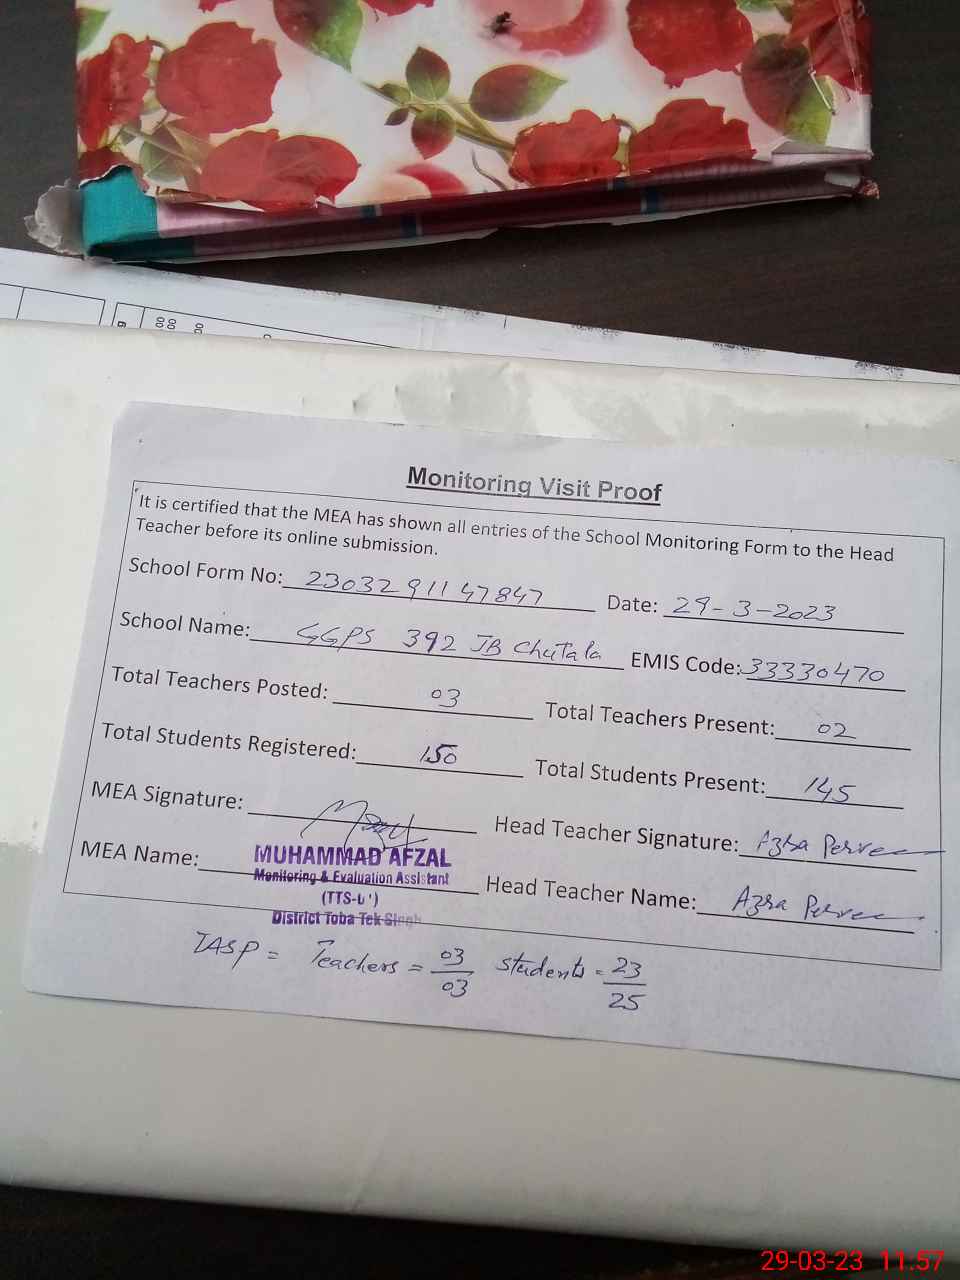 Monitoring Visit Proof
It is certified that the MEA has shown all entries of the School Monitoring Form to the Head
Teacher before its online submission.
School Form No: 2303291147847 Date: 29-3-2023
School Name: GGPS 392 JB Chutala EMIS Code: 33330470
Total Teachers Posted: 03 Total Teachers Present: 02
Total Students Registered: 150 Total Students Present: 145
MEA Signature: Head Teacher Signature: Azra Perveen
MEA Name: MUHAMMAD AFZAL Head Teacher Name: Azra Perveen
Monitoring & Evaluation Assistant
District Toba Tek Singh
TASP = Teachers = 03/03 students = 23/25
29-03-23 11.57